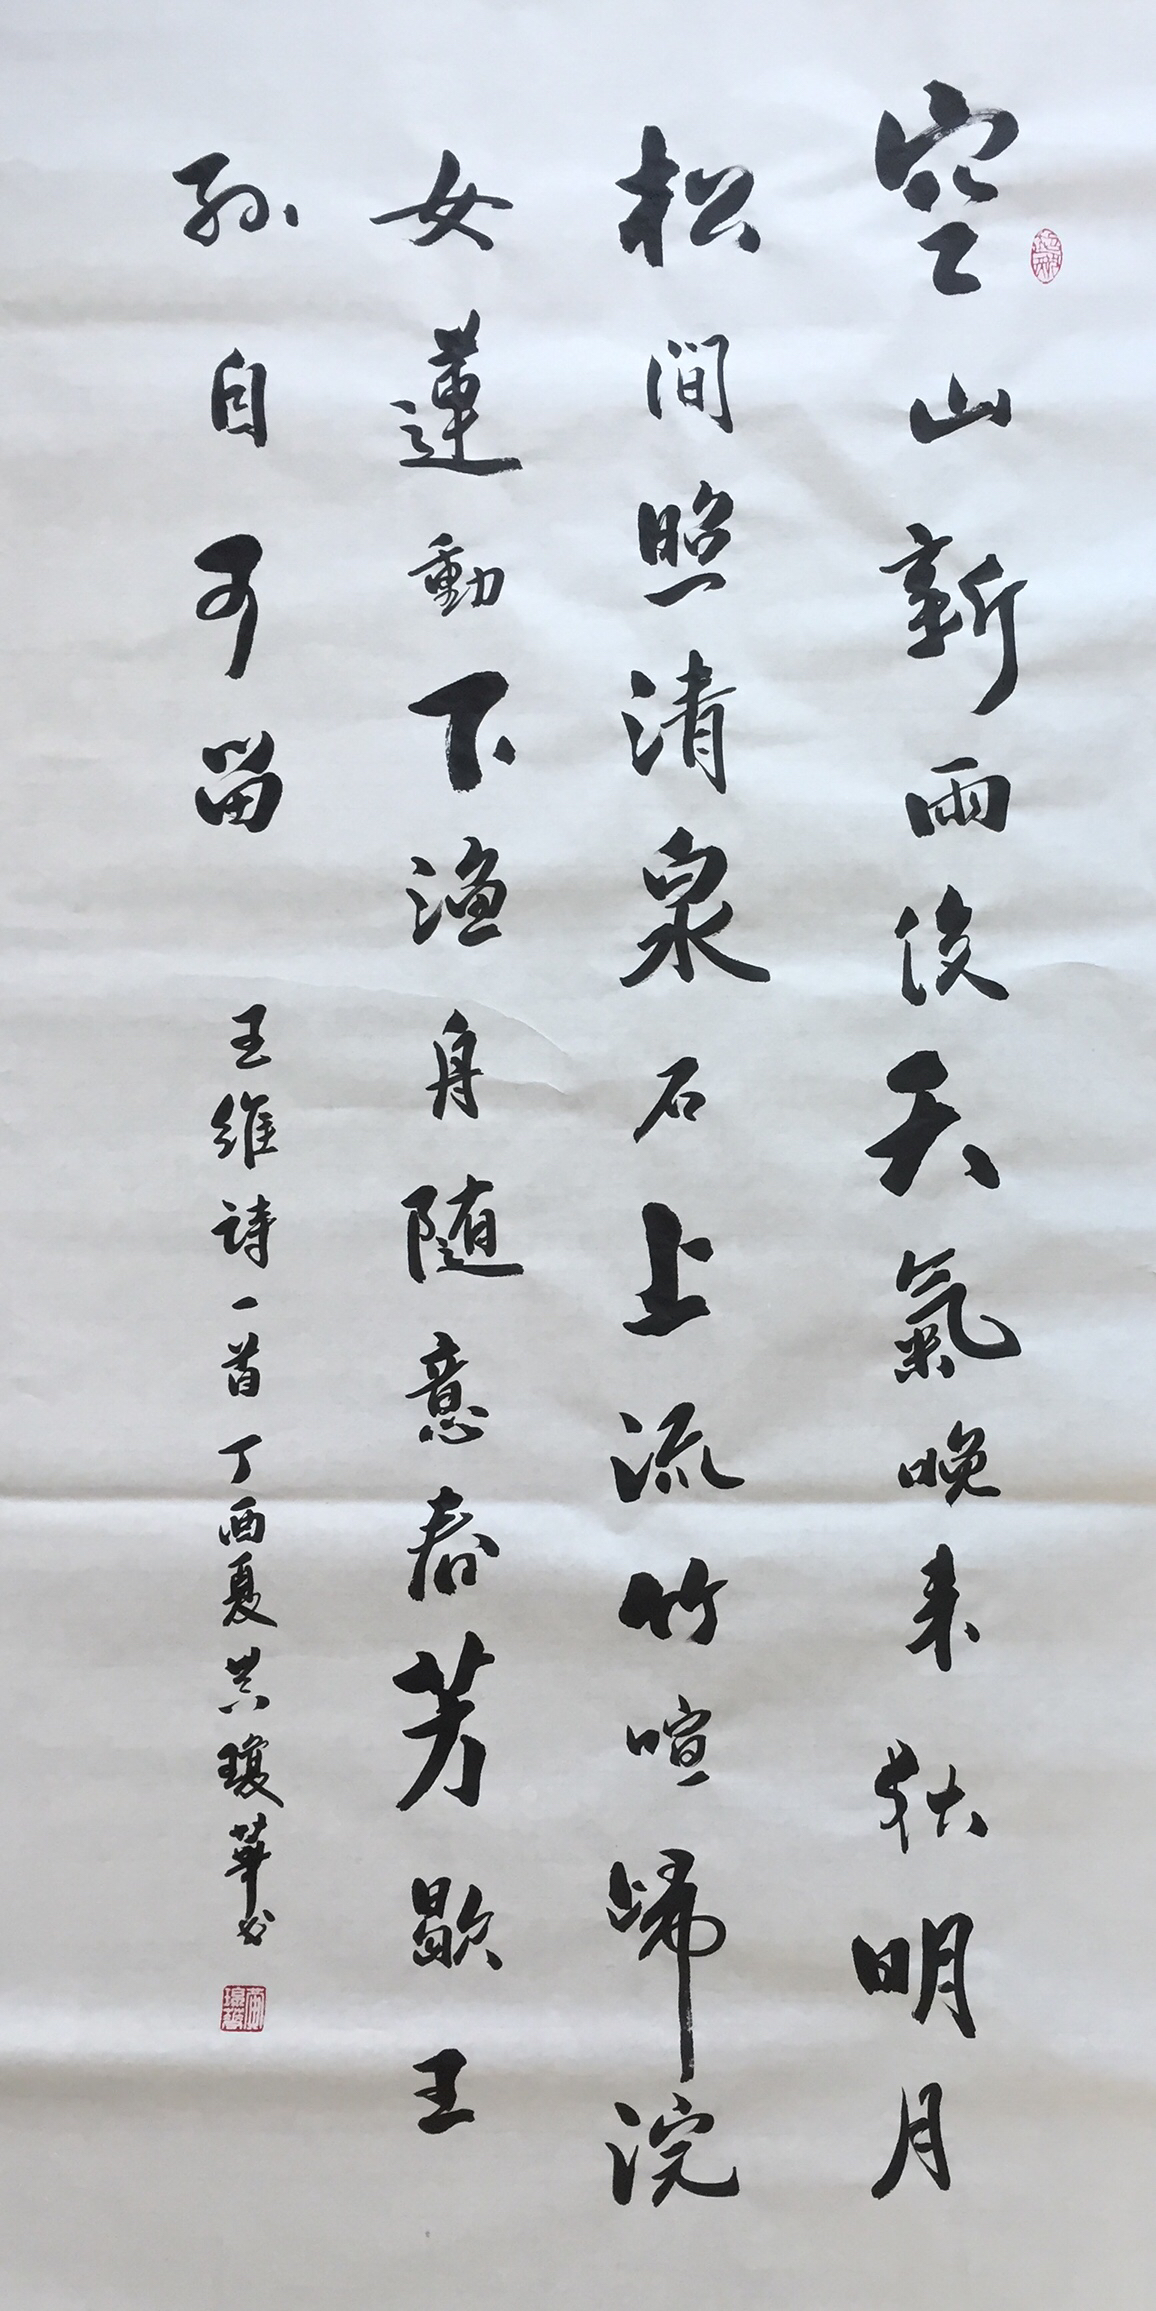 空山新雨後天氣晚来秋明月
松间照清泉石上流竹喧歸浣
女蓮動下渔舟随意春芳歇王
孫自可留
王維诗一首丁酉夏瓊華书